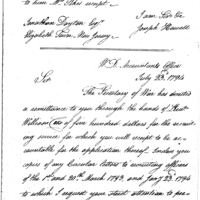 to him Mr. Stokes receipt
I am Sir &c
Jonathan Dayton Esqr.
Joseph Howell
Elizabeth Town New Jersey
W.D. Accountants Office
July 23. 1794
Sir
The Secretary of War has directed
a remittance to you through the hands of
William of five hundred dollars for the recruit
ing service for which you will except to be ac
countable for the application thereof. Inclose you
copies of my Circular letters to recruiting officers
of the 1st and 20th March 1793, and 23d 1794
to which I request your strict attention to pre